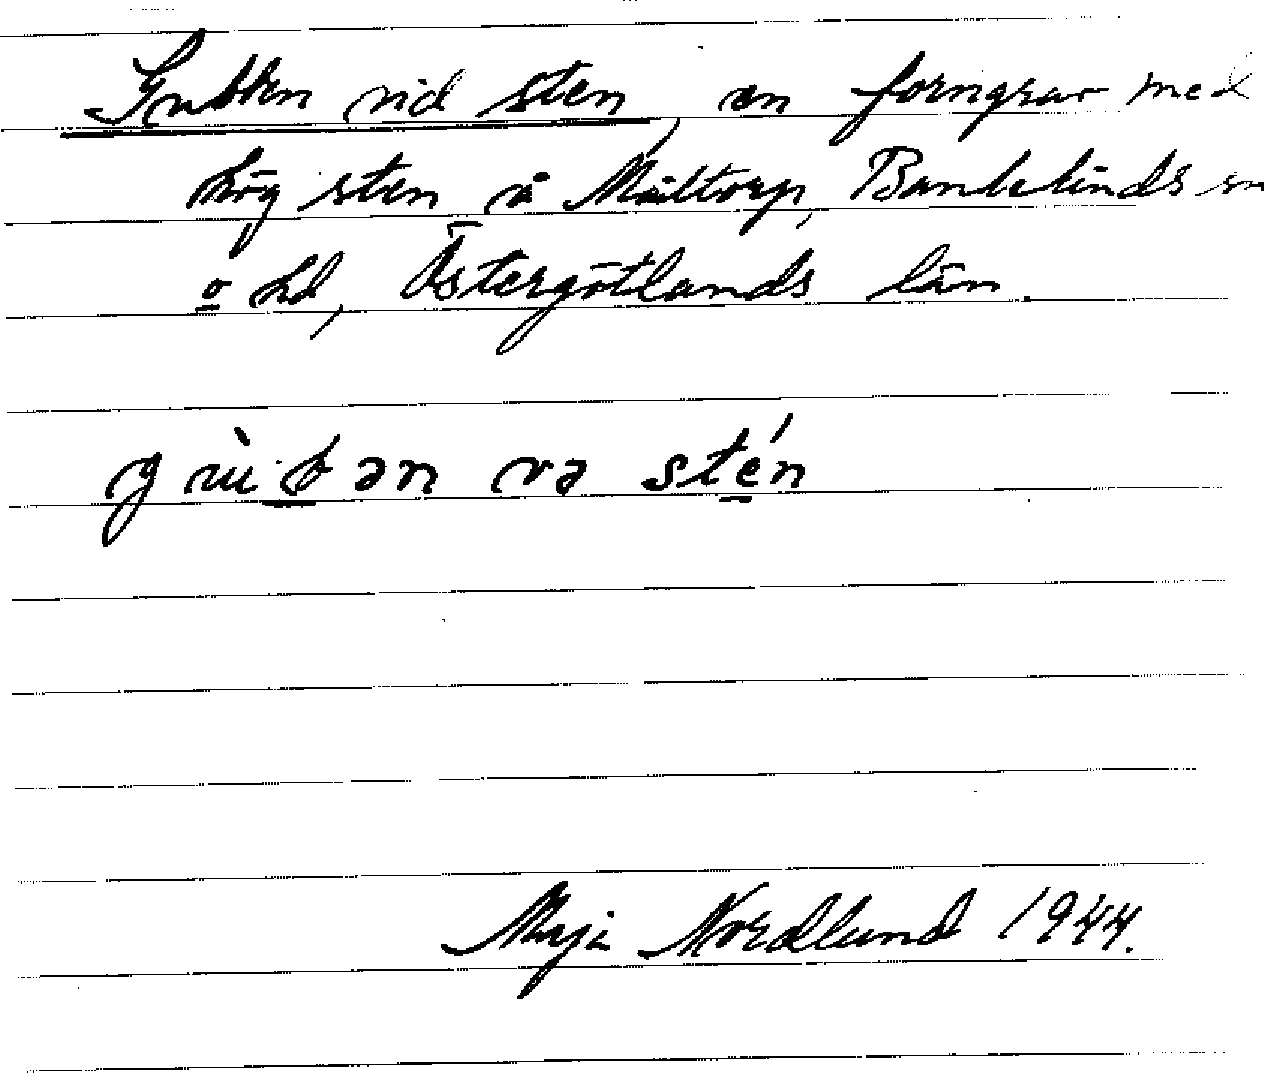 Gubben vid sten, en forngrav med
hög sten å Måltorp, Bankekinds sn
o hd, Östergötlands län.
gùb̲ən və sté̲n
Maja Nordlund 1944.